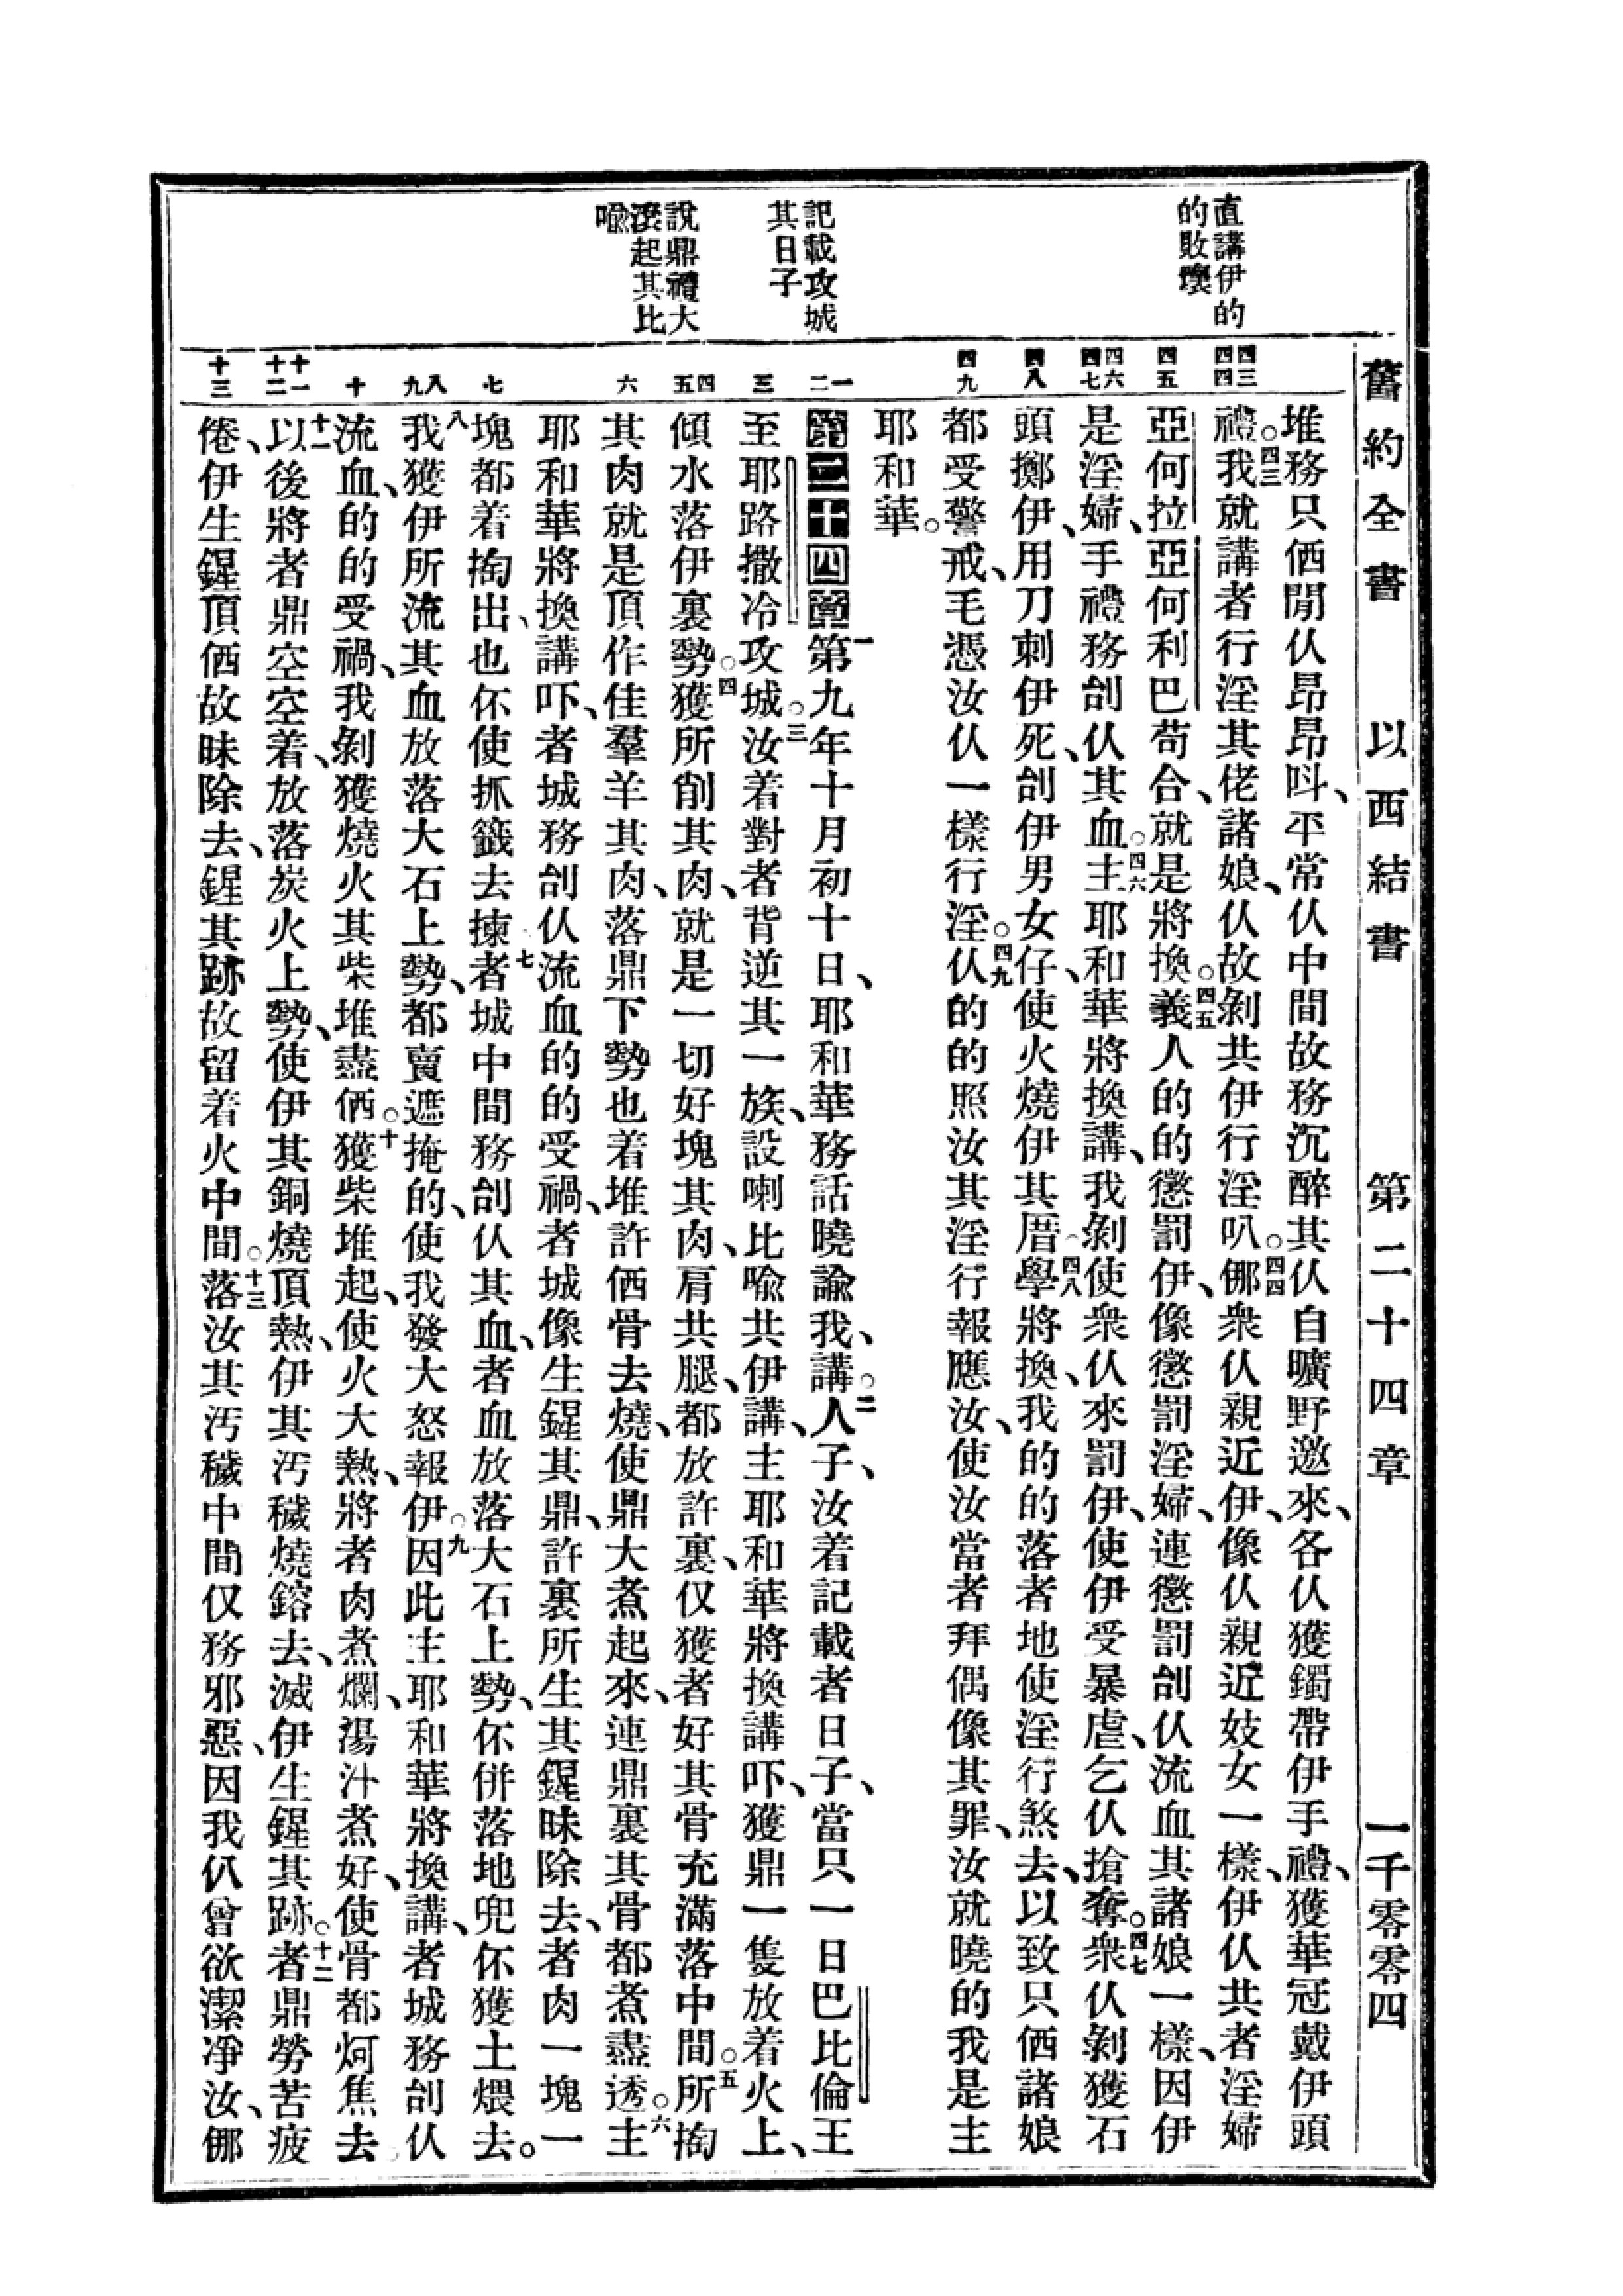 舊約全書 以西結書 第二十四章 一千零零四
直講伊的
的敗壞
記載攻城
其日子
說鼎禮大
滾起其比
喩
四三 四四 四五 四六 四七 四八 四九 一 二 三 四 五 六 七 八 九 十 十一 十二 十三
堆務只価閒仈昂昂呌、平常仈中間故務沉醉其仈自曠野邀來、各仈獲鐲帶伊手禮、獲華冠戴伊頭
禮。○四三我就講者行淫其佬諸娘、仈故剝共伊行淫叭。○四四㑚衆仈親近伊、像仈親近妓女一樣、伊仈共者淫婦
亞何拉亞何利巴苟合、就是將換。○四五義人的的懲罰伊、像懲罰淫婦、連懲罰刣仈流血其諸娘一樣、因伊
是淫婦、手禮務刣仈其血。○四六主耶和華將換講、我剝使衆仈來罰伊、使伊受暴虐、乞仈搶奪。○四七衆仈剝獲石
頭擲伊、用刀刺伊死、刣伊男女仔、使火燒伊其厝。○四八學將換、我的的落者地使淫行煞去、以致只価諸娘
都受警戒、乇憑汝仈一樣行淫。○四九仈的的照汝其淫行報應汝、使汝當者拜偶像其罪、汝就曉的我是主
耶和華。
第二十四章 一第九年十月初十日、耶和華務話曉諭我、講。○二人子、汝着記載者日子、當只一日巴比倫王
至耶路撒冷攻城。○三汝着對者背逆其一族、設喇比喩共伊講、主耶和華將換講吓、獲鼎一隻放着火上、
傾水落伊裏勢。○四獲所削其肉、就是一切好塊其肉、肩共腿、都放許裏、仅獲者好其骨充滿落中間。○五所掏
其肉就是頂作佳羣羊其肉、落鼎下勢也着堆許価骨去燒、使鼎大煮起來、連鼎裏其骨都煮盡透。○六主
耶和華將換講吓、者城務刣仈流血的的受禍、者城像生鍟其鼎、許裏所生其鍟昧除去、者肉一塊一
塊都着掏出、也伓使抓籤去揀。七者城中間務刣仈其血、者血放落大石上勢、伓併落地兜伓獲土煨去。
八我獲伊所流其血放落大石上勢、都賣遮掩的、使我發大怒報伊。○九因此主耶和華將換講、者城務刣仈
流血、的的受禍、我剝獲燒火其柴堆盡価。○十獲柴堆起、使火大熱、將者肉煮爛、湯汁煮好、使骨都炣焦去
十一以後將者鼎空空着、放落炭火上勢、使伊其銅燒頂熱、伊其汚穢燒鎔去、滅伊生鍟其跡。○十二者鼎勞苦疲
倦、伊生鍟頂価故昧除去、鍟其跡故留着火中間。○十三落汝其汚穢中間仅務邪惡、因我仈曾欲潔凈汝、㑚